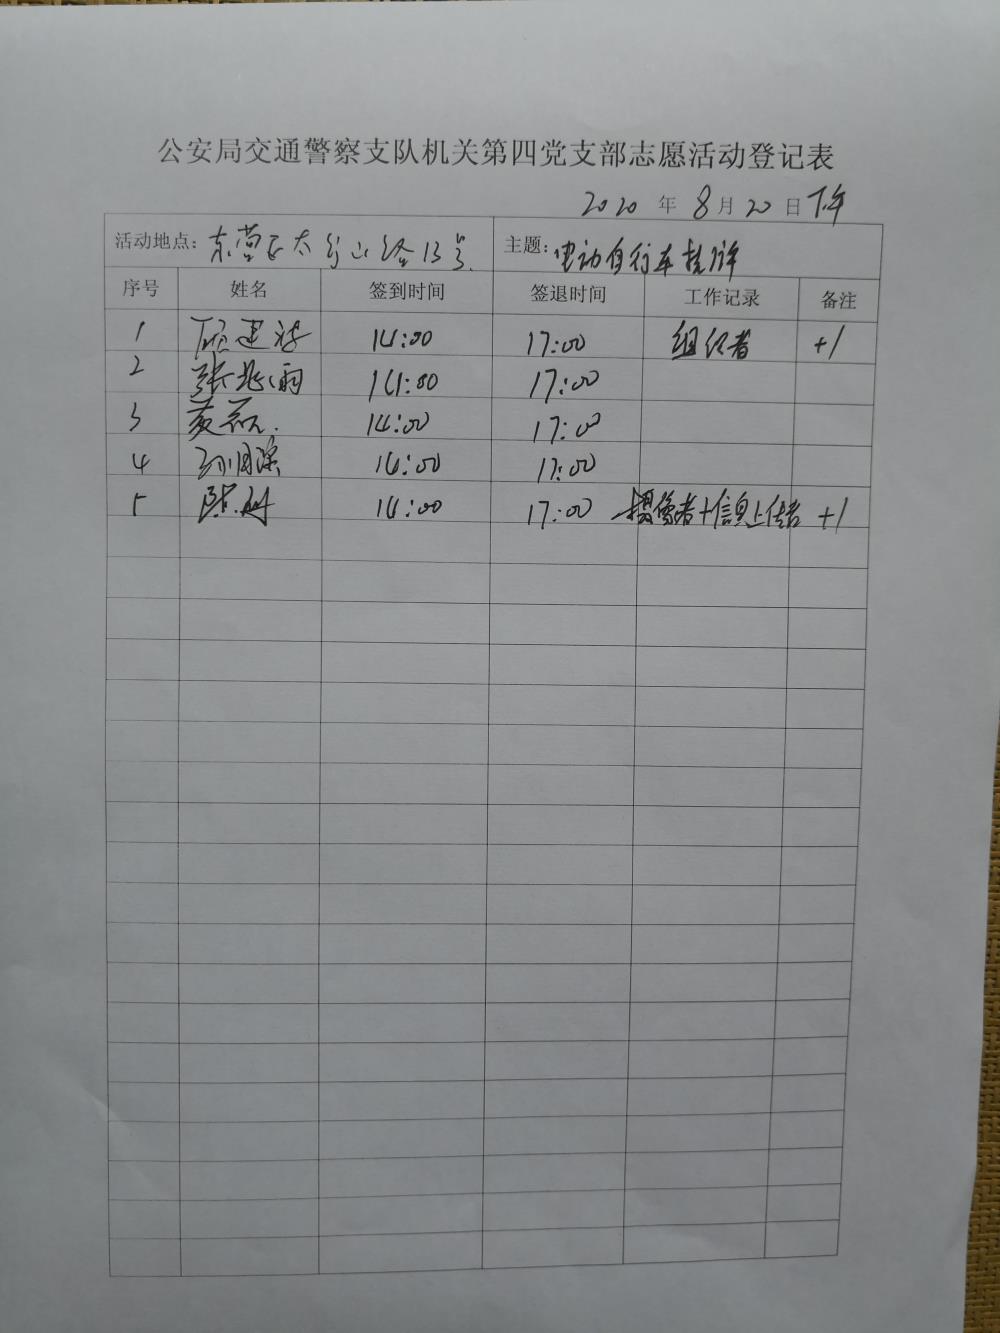 公安局交通警察支队机关第四党支部志愿活动登记表
2020 年 8 月 20 日 下午
活动地点: 东营区太 13号. 主题: 电动自行车挂牌
序号 姓名 签到时间 签退时间 工作记录 备注
1 14:00 17:00 组织者 +1
2 张兆雨 14:00 17:00
3 黄磊. 14:00 17:00
4 14:00 17:00
5 14:00 17:00 摄像者+信息上传者 +1